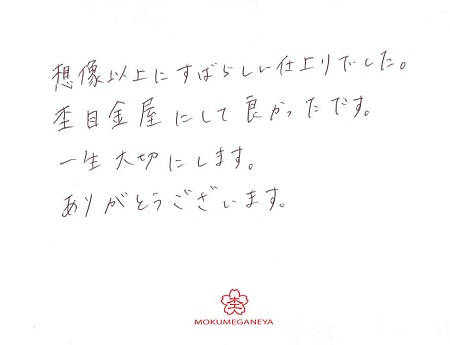 想像以上にすばらしい仕上りでした。
杢目金屋にして良かったです。
一生大切にします。
ありがとうございます。
杢
MOKUMEGANEYA